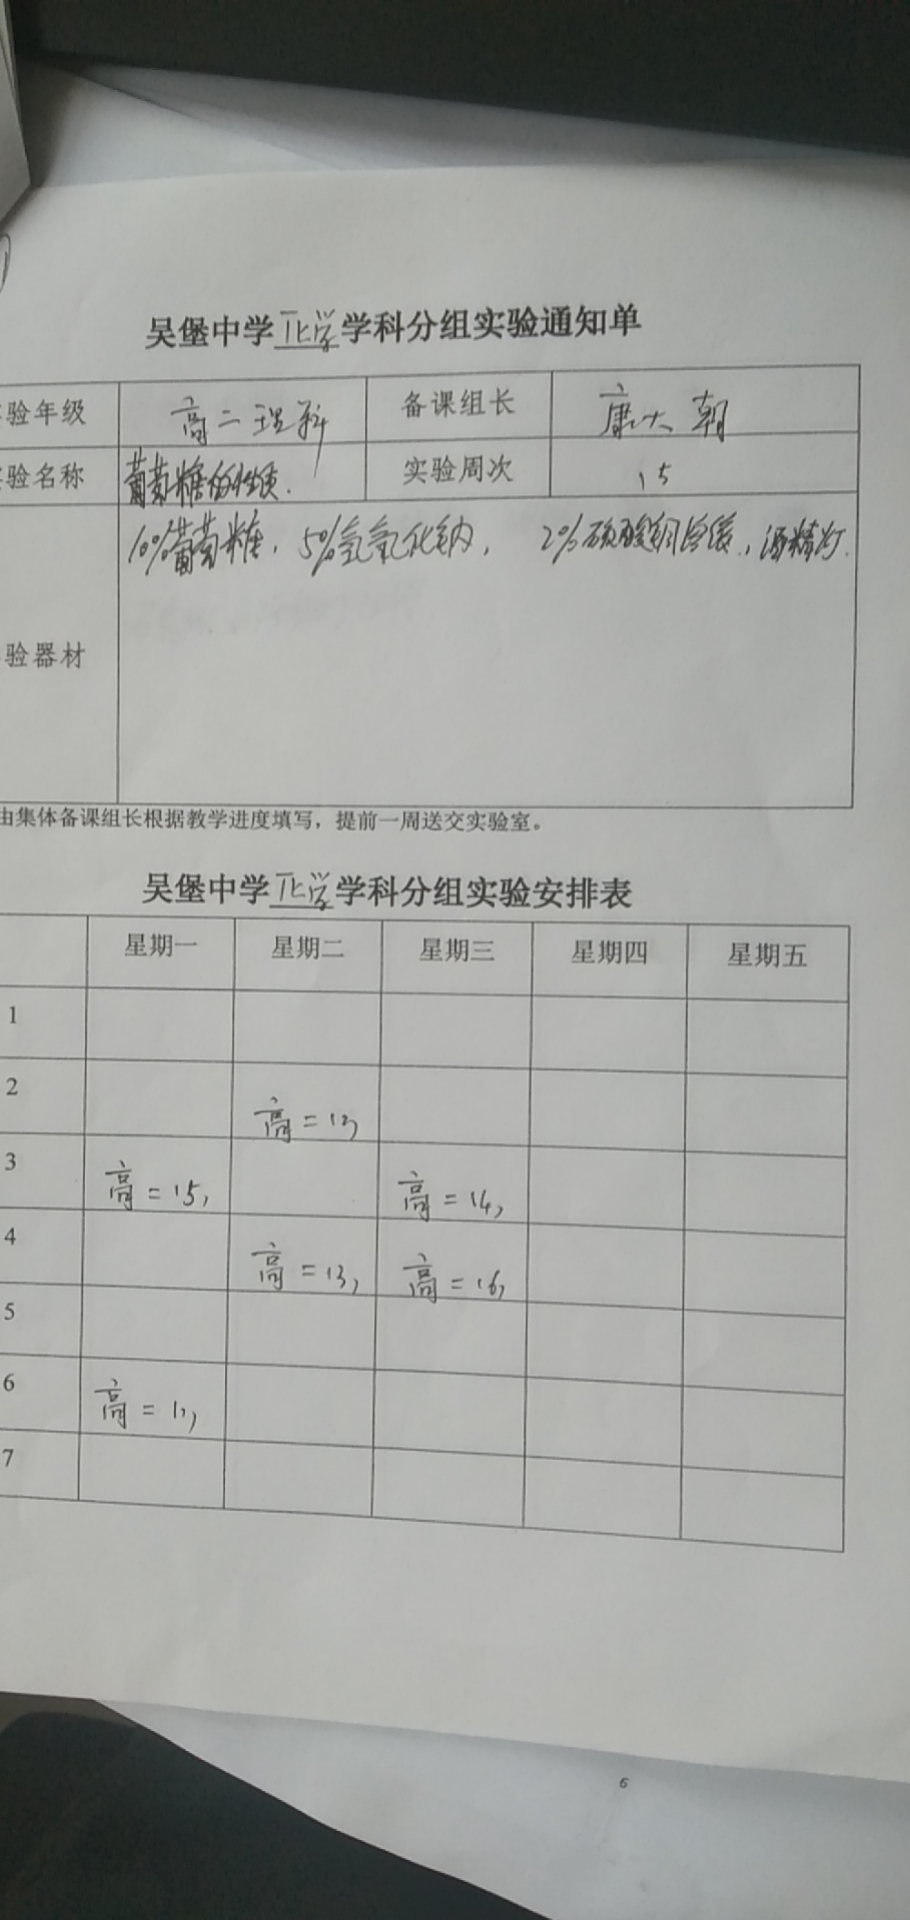 吴堡中学化学学科分组实验通知单
验年级 高二理科 备课组长 康大朝
验名称 葡萄糖的性质. 实验周次 15
10%葡萄糖, 5%氢氧化钠, 2%硫酸铜溶液, 酒精灯.
验器材
由集体备课组长根据教学进度填写，提前一周送交实验室。
吴堡中学化学学科分组实验安排表
星期一 星期二 星期三 星期四 星期五
1
2 高二12,
3 高二15, 高二14,
4 高二13, 高二16,
5
6 高二11,
7
6